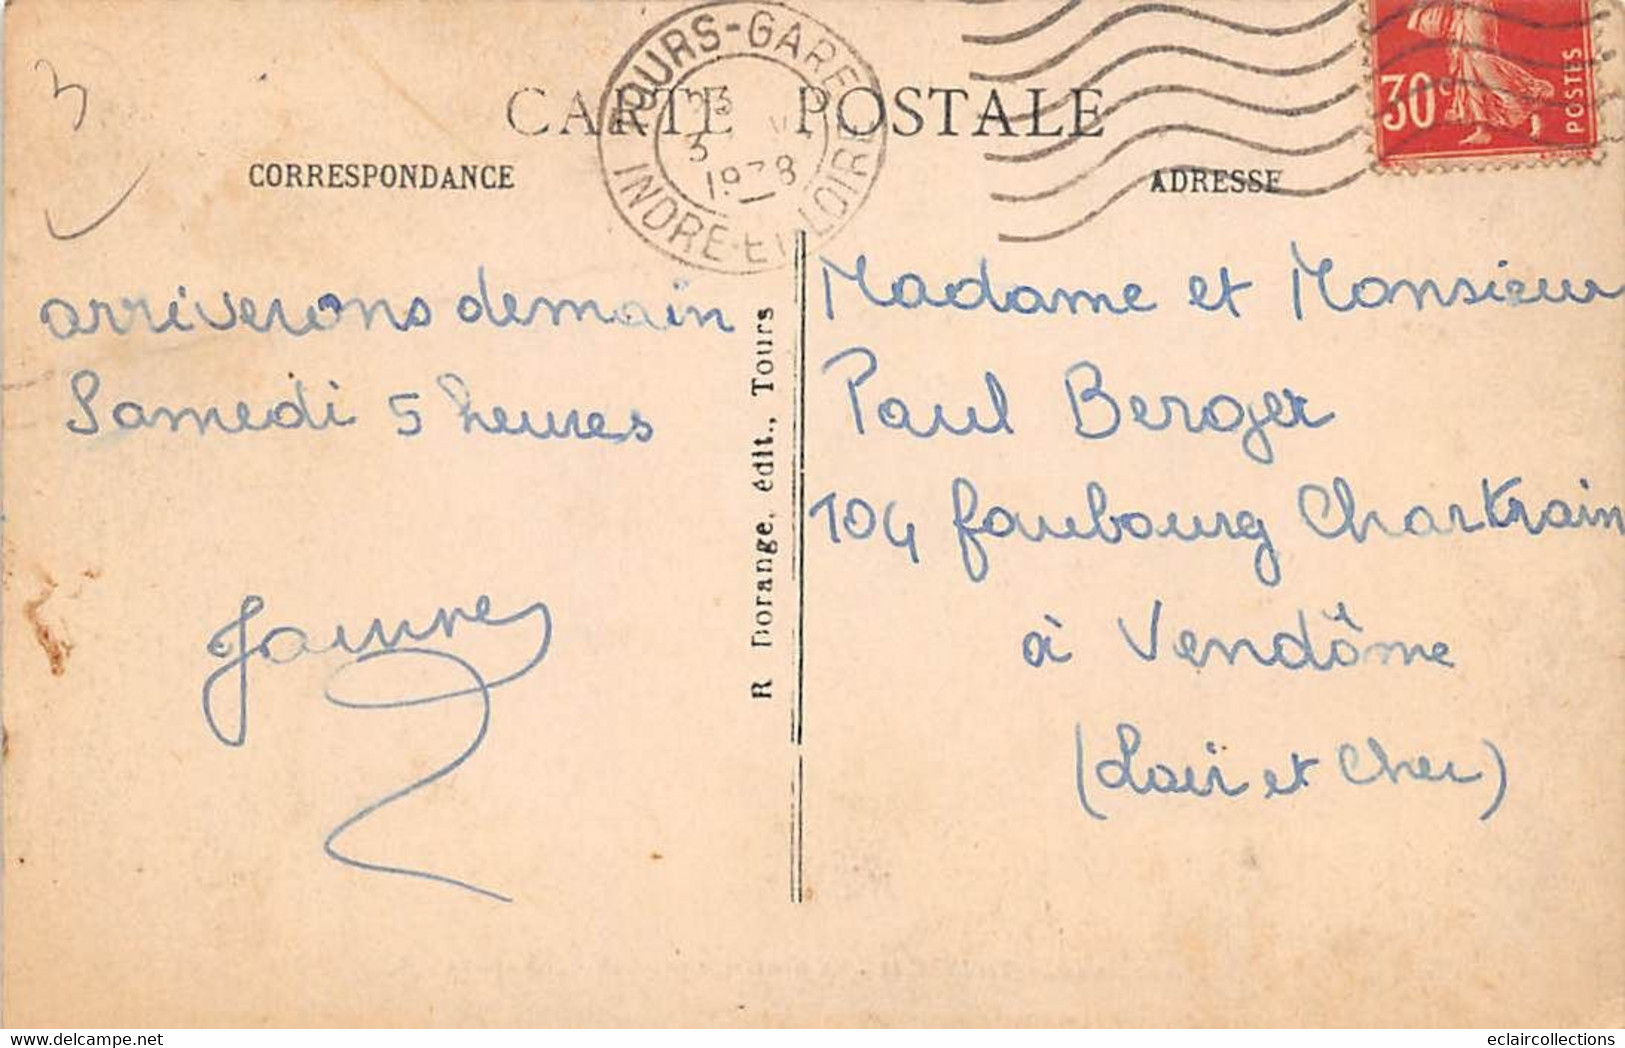 CARTE POSTALE
CORRESPONDANCE
ADRESSE
TOURS-GARE
1938
INDRE-ET-LOIRE
30c
POSTES
3
arriverons demain
Samedi 5 heures
R. Dorange, édit., Tours
Madame et Monsieur
Paul Berger
104 faubourg Chartrain
à Vendôme
(Loir et Cher)
eclaircollections